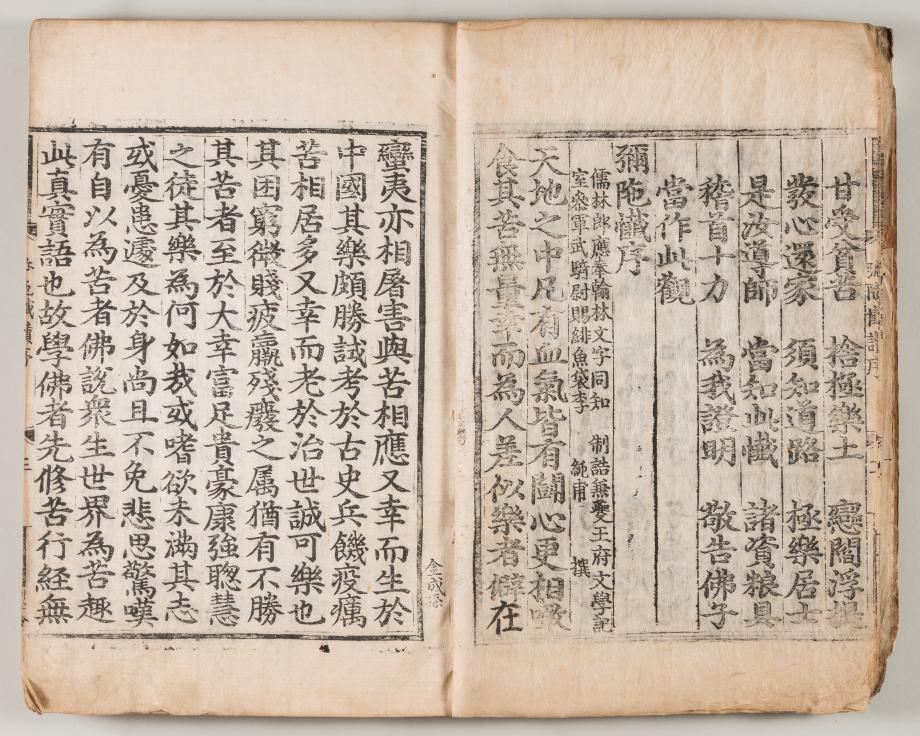 甘受貧苦 捨極樂土 戀閻浮提
發心還家 須知道路 極樂居士
是汝導師 當知此懺 諸資糧具
稽首十力 為我證明 敬告佛子
當作此觀
彌陁懺序
儒林郎應奉翰林文字同知 制誥兼夔王府文學記
室叅軍武騎尉賜緋魚袋李 純甫 撰
天地之中凡有血氣皆有鬪心更相啖
食其苦無量幸而為人差似樂者僻在
蠻夷亦相屠害與苦相應又幸而生於
中國其樂頗勝試考於古史兵饑疫癘
苦相居多又幸而老於治世誠可樂也
其困窮微賤疲羸殘廢之属猶有不勝
其苦者至於大幸富足貴豪康強聦慧
之徒其樂為何如㢤或嗜欲未滿其志
或憂患遽及於身尚且不免悲思驚嘆
有自以為苦者佛說衆生世界為苦趣
此真實語也故學佛者先修苦行経無